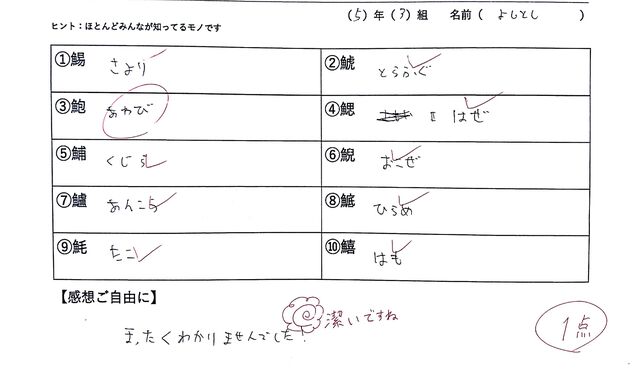 (5)年(3)組　名前(　よしとし　)
ヒント：ほとんどみんなが知ってるモノです
①鯣　さより
②鯱　とらふぐ
③鮑　あわび
④鰓　はぜ
⑤鯆　くじら
⑥鯢　おこぜ
⑦鱸　あんこう
⑧鯳　ひらめ
⑨魹　たこ
⑩鱚　はも
【感想ご自由に】
まったくわかりませんでした！　潔いですね
1点